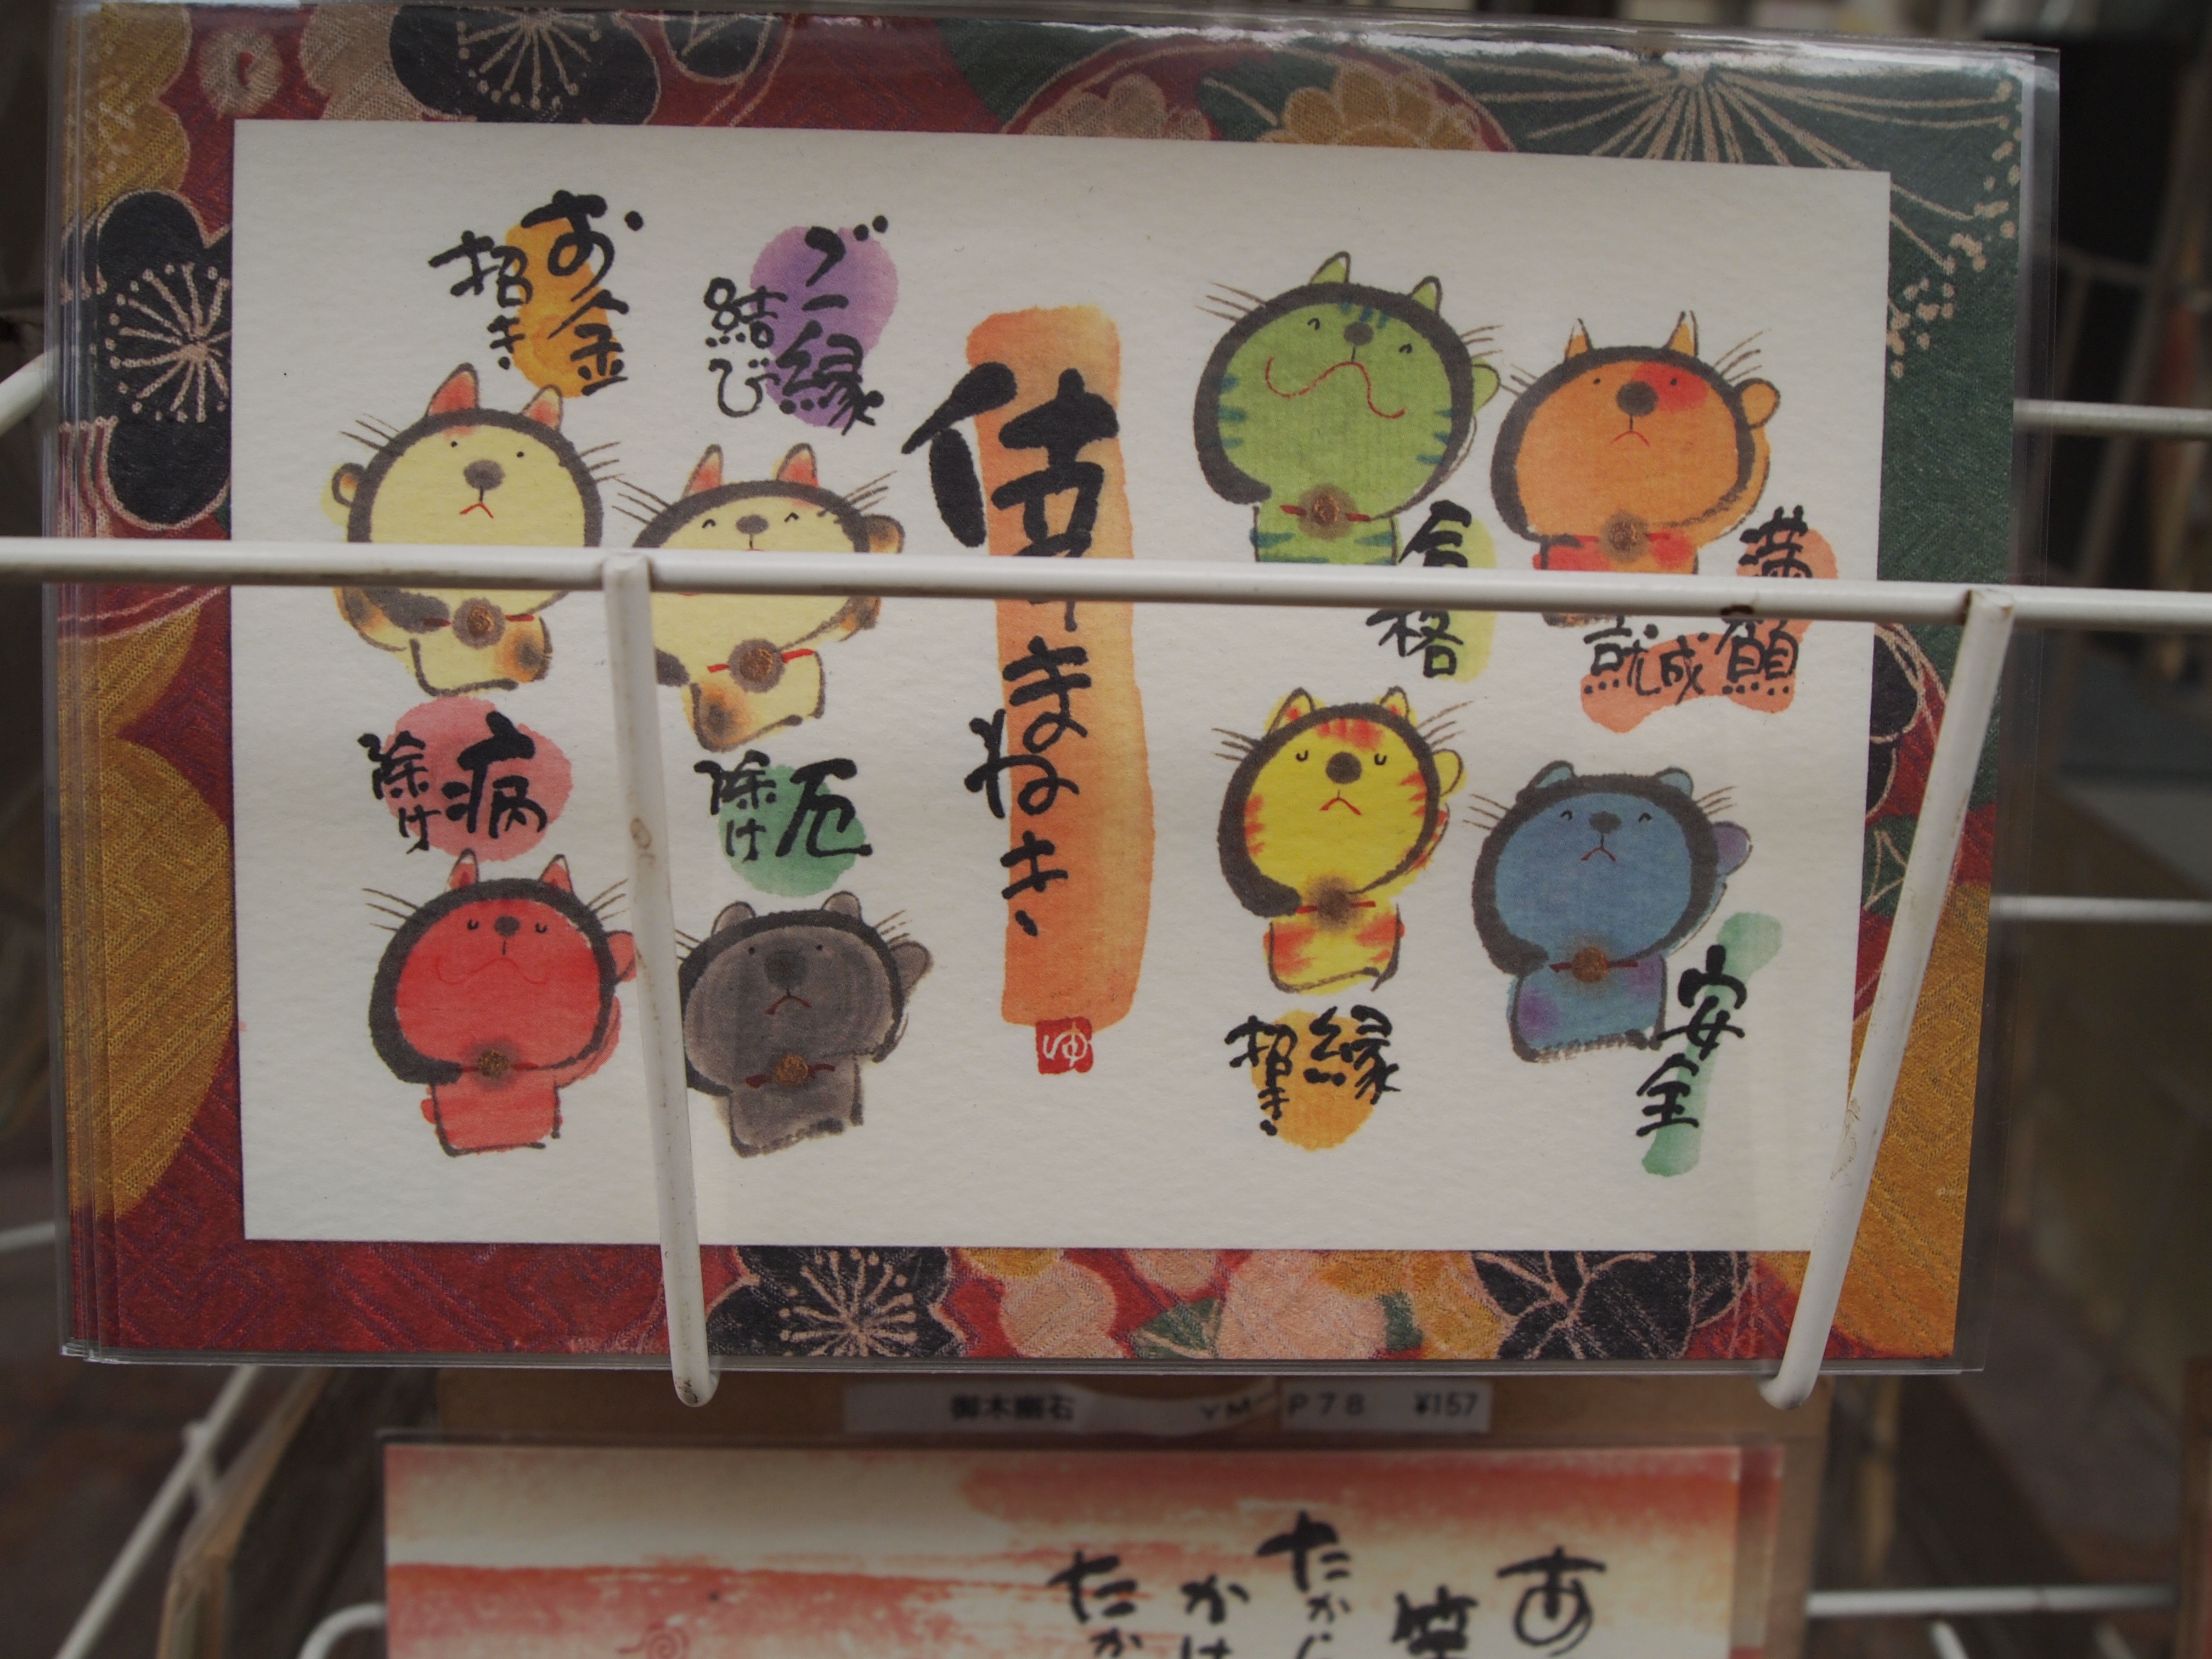 満願
就成
合格
安全
縁
招き
倖せまねき
ゆ
ご縁
結び
お金
招き
厄
除け
病
除け
YM-P78 ¥157
あ
笑
たから
かけ
たか